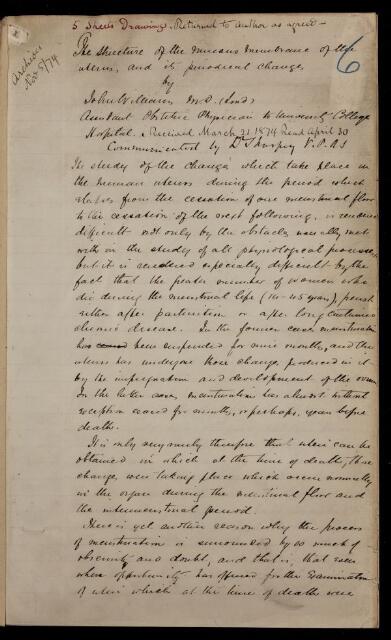 5 Sheets Drawings. Returned to Author as agreed —
Archives
Nov 5/74
6
The structure of the mucous membrane of the
uterus, and its periodical changes,
by
John Williams M.D. (Lond)
Assistant Obstetric Physician to University College
Hospital. Received March 21 1874 Read April 30
Communicated by Dr Sharpey V.P.R.S
The study of the changes which take place in
the human uterus during the period which
elapses from the cessation of one menstrual flow
to the cessation of the next following, is rendered
difficult not only by the obstacles usually met
with in the study of all physiological processes,
but it is rendered especially difficult by the
fact that the greater number of women who
die during the menstrual life (14-45 years), perish
either after parturition or after long continued
chronic disease. In the former cases menstruation
has been suspended for nine months, and the
uterus has undergone those changes produced in it
by the impregnation and development of the ovum
In the latter cases, menstruation has almost without
exception ceased for months, or perhaps, years before
death.
It is only very rarely therefore that uteri can be
obtained in which at the time of death, those
changes were taking place which occur normally
in the organ during the menstrual flow and
the intermenstrual period.
There is yet another reason why the process
of menstruation is surrounded by so much of
obscurity and doubt, and that is, that even
when opportunity has offered for the examination
of uteri which at the time of death were